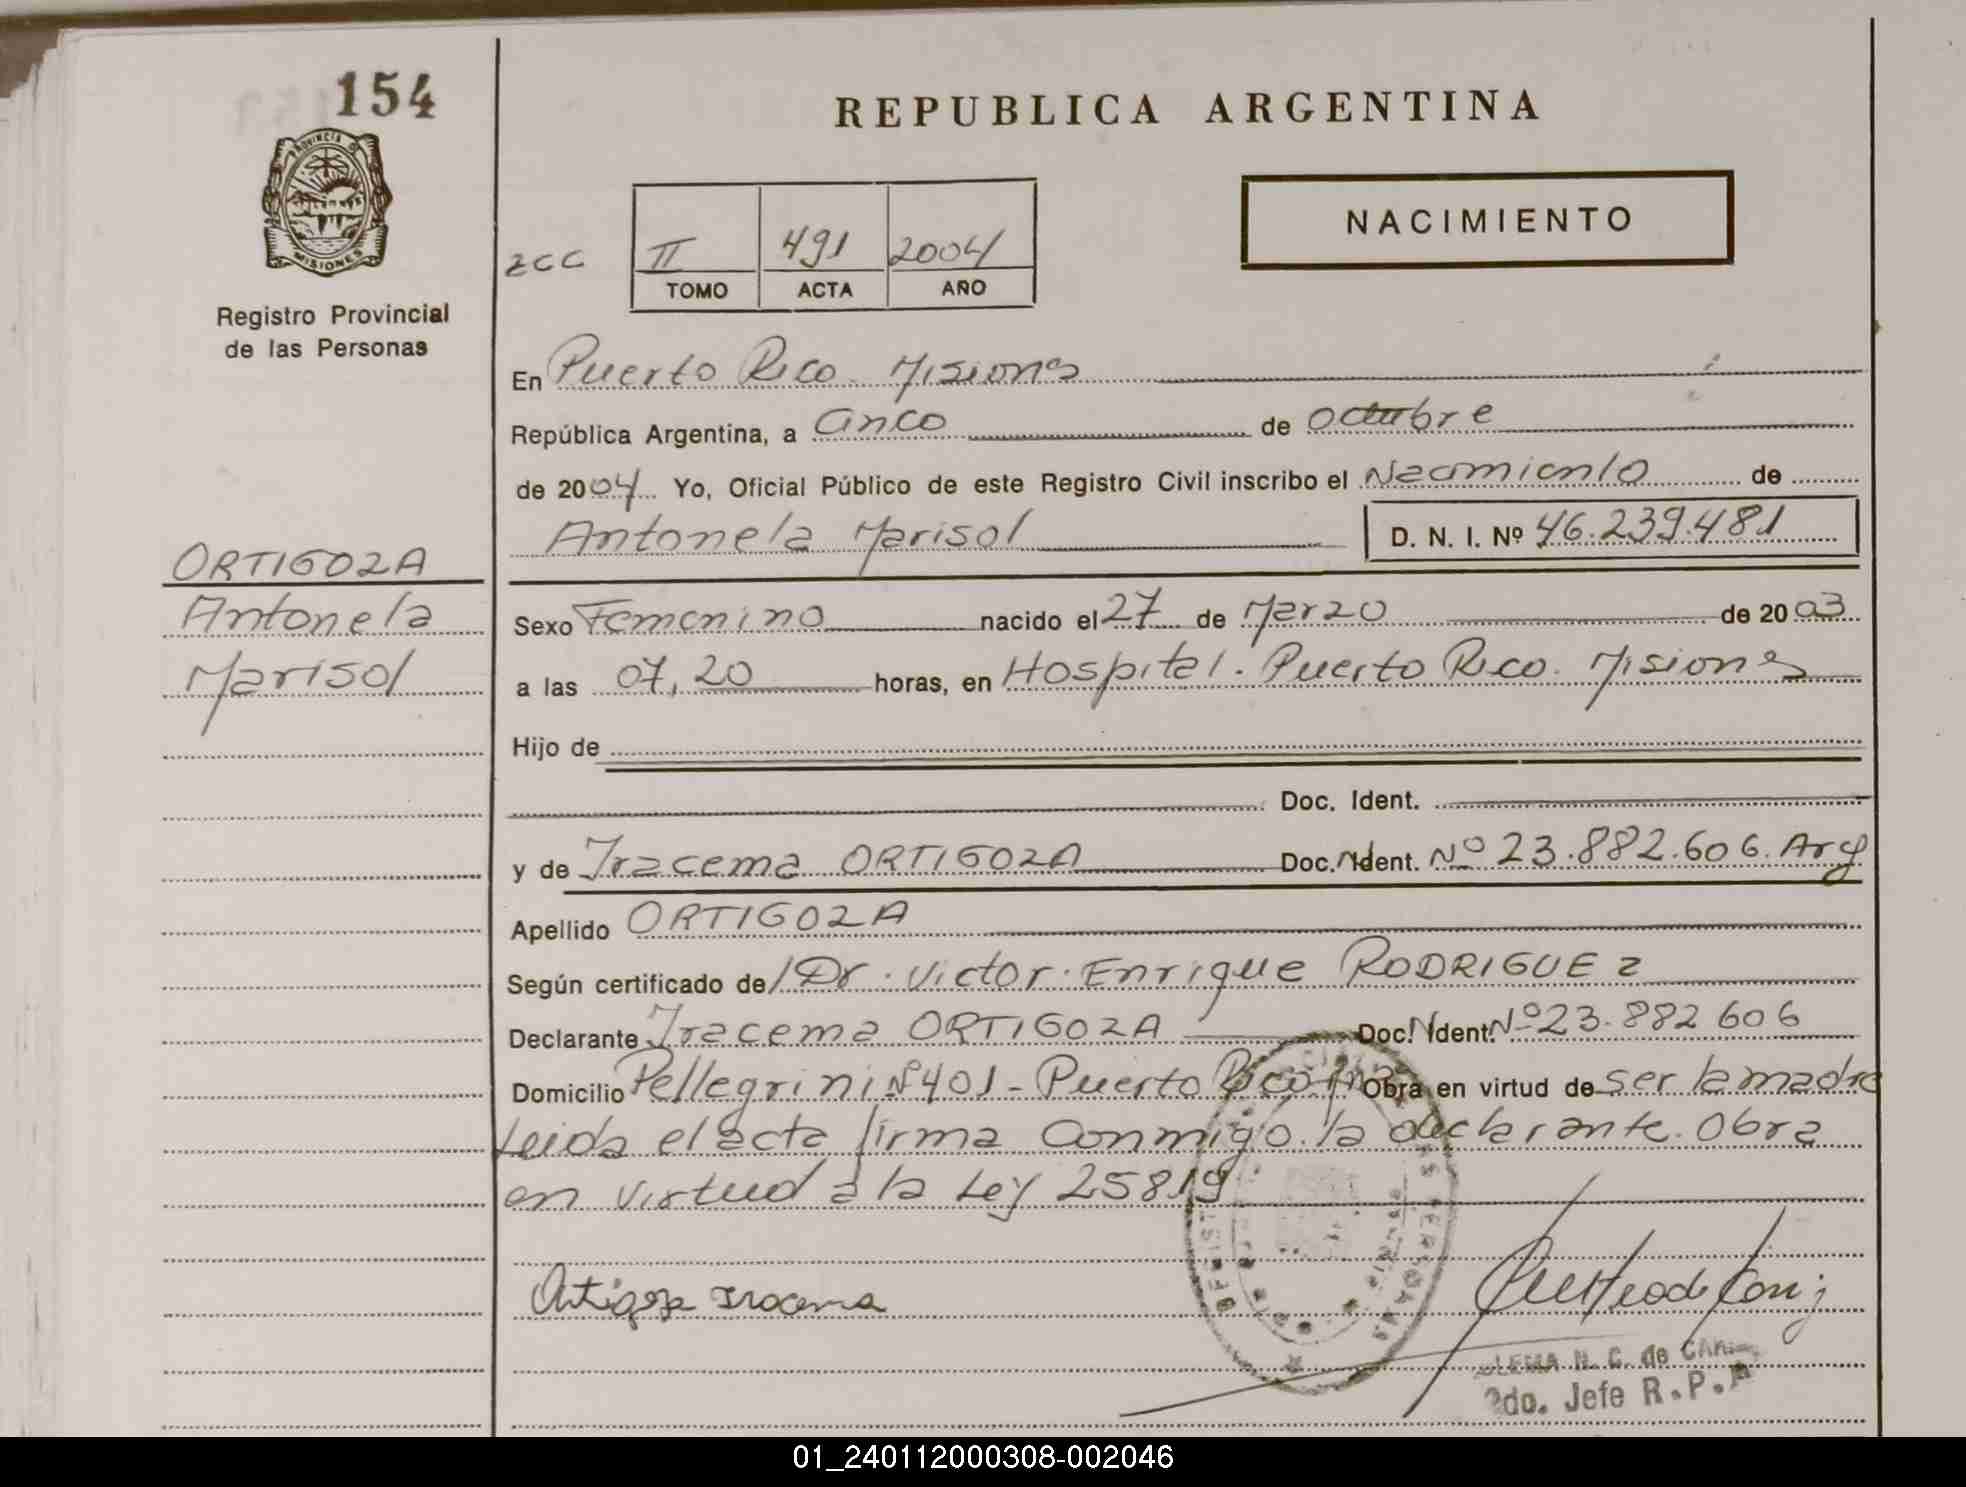 154
PROVINCIA DE
MISIONES
Registro Provincial
de las Personas
REPUBLICA ARGENTINA
NACIMIENTO
zcc
II 491 2004
TOMO ACTA AÑO
En Puerto Rico. Misiones
República Argentina, a cinco de octubre
de 2004 Yo, Oficial Público de este Registro Civil inscribo el Nacimiento de
Antonela Marisol D. N. I. Nº 46.239.481
ORTIGOZA
Antonela
Marisol
Sexo Femenino nacido el 27 de Marzo de 2003
a las 07,20 horas, en Hospital. Puerto Rico. Misiones
Hijo de
Doc. Ident.
y de Iracema ORTIGOZA Doc. Ident. Nº 23.882.606. Arg
Apellido ORTIGOZA
Según certificado de Dr. Victor. Enrique RODRIGUEZ
Declarante Iracema ORTIGOZA Doc. Ident. Nº 23.882 606
Domicilio Pellegrini Nº 401 - Puerto Rico Obra en virtud de ser la madre
Leida el acta firma conmigo la declarante. Obra
en virtud a la Ley 25819
Ortigoza Iracema
N. C. de
2do. Jefe R. P. P
01_240112000308-002046